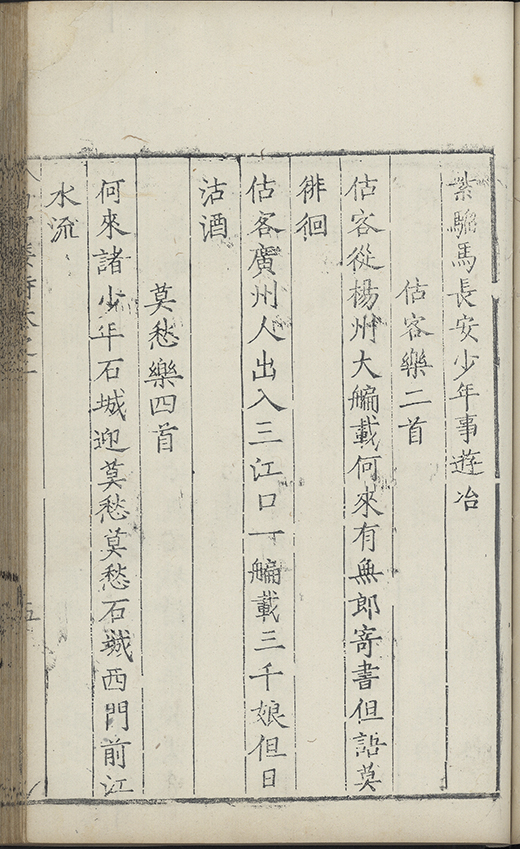 紫騮馬長安少年事遊冶
估客樂二首
估客從楊州大艑載何來有無郎寄書但語莫
徘徊
估客廣州人出入三江口一艑載三千娘但日
沽酒
莫愁樂四首
何來諸少年石城迎莫愁莫愁石城西門前江
水流
五